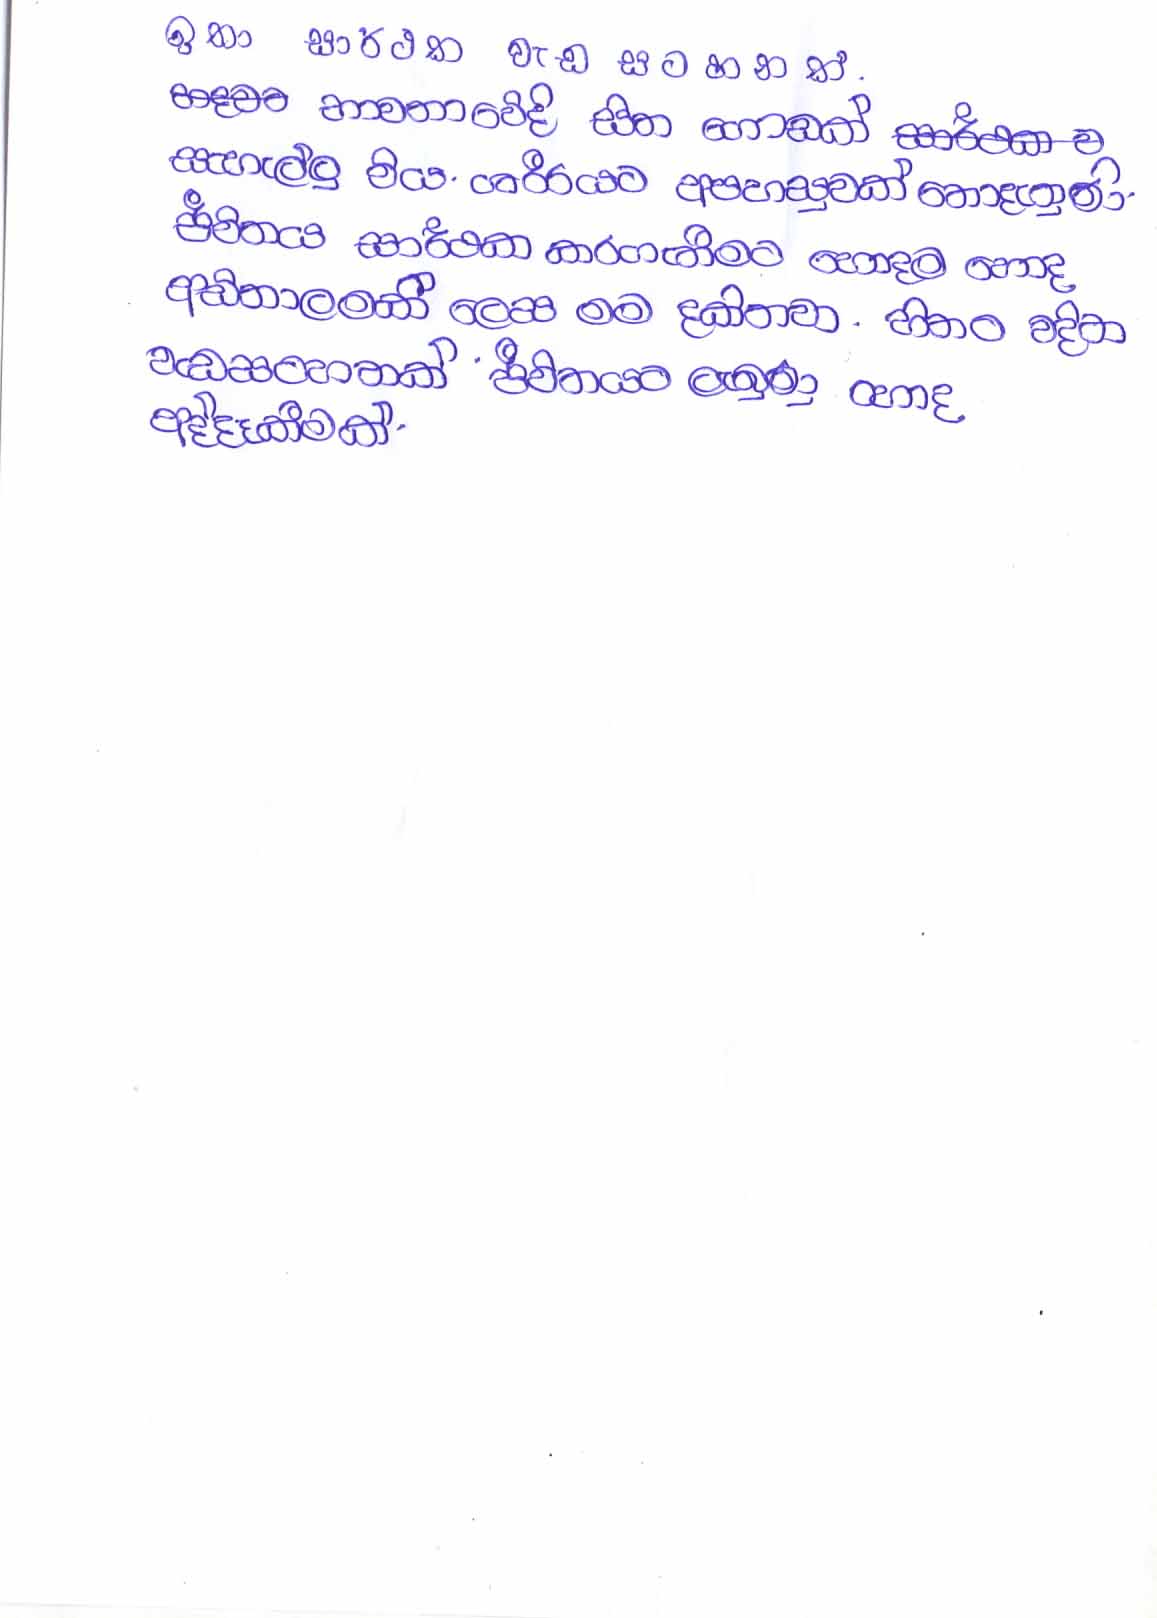 ඉතා සාර්ථක වැඩ සටහනක්.
හදවත භාවනාවේදී සිත ගොඩක් සාර්ථක ව
සැහැල්ලු විය. ශරීරයට අපහසුවක් නොදැනුණි.
ජීවිතය සාර්ථක කරගැනීමට හොඳම හොඳ
අඩිතාලමක් ලෙස මම දකිනවා. හිතට වදින
වැඩසටහනක්. ජීවිතයට ලැබුණු හොඳ
අද්දැකීමක්.